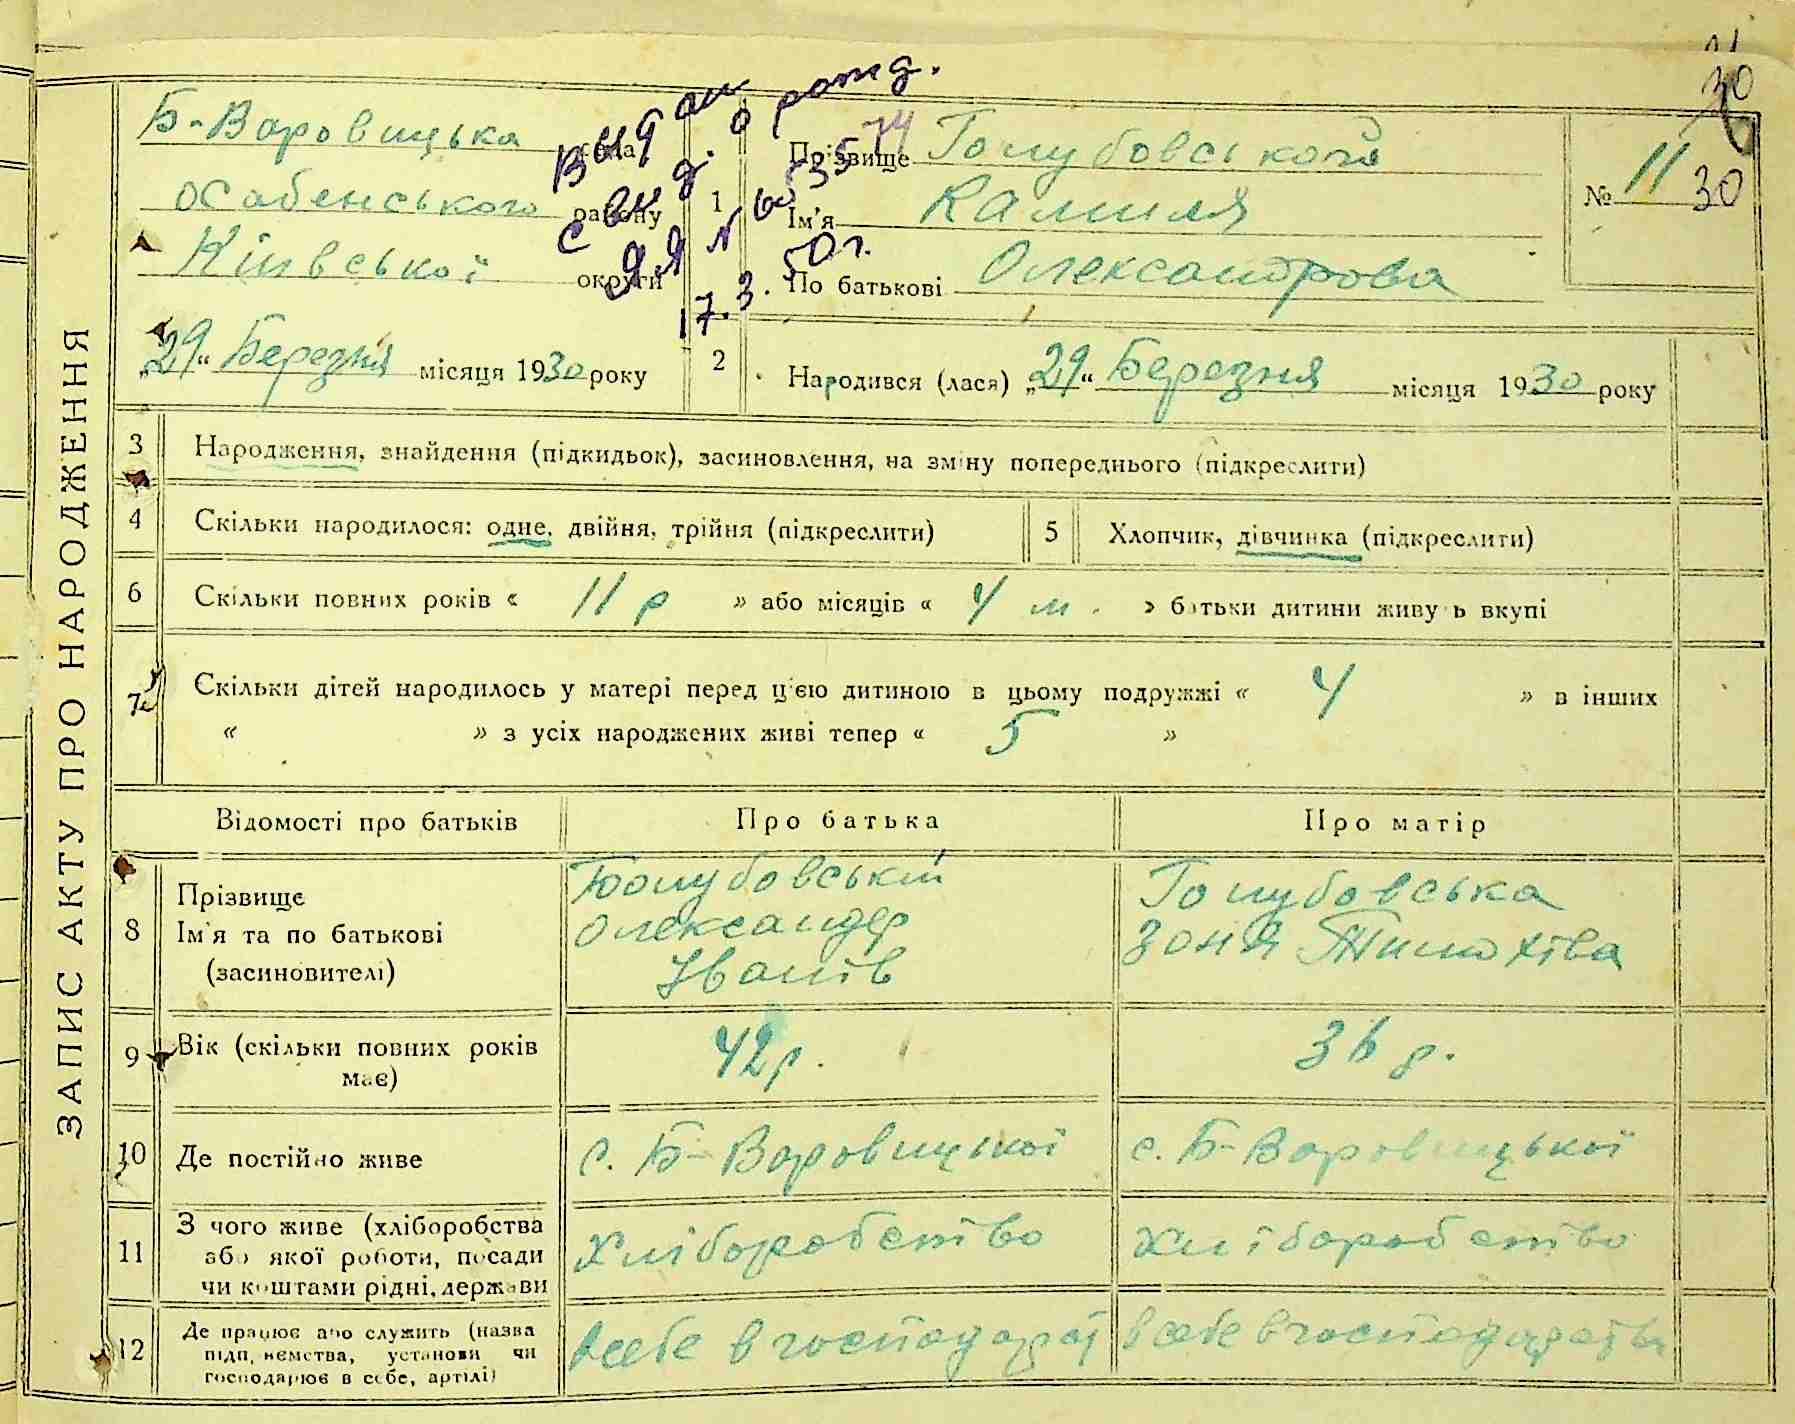 ЗАПИС АКТУ ПРО НАРОДЖЕННЯ
31
30
Б-Варовицька села
особенського району
Київської округи
„29“ Березня місяця 1930 року
Выдан
свид. о рожд.
ЯЯ № 603574
17.3.50 г.
1
Прізвище Голубовської
Ім'я Камиля
По батькові Олександрова
№ 11 30
2 Народився (лася) „29“ Березня місяця 1930 року
3 Народження, знайдення (підкидьок), засиновлення, на зміну попереднього (підкреслити)
4 Скільки народилося: одне, двійня, трійня (підкреслити)
5 Хлопчик, дівчинка (підкреслити)
6 Скільки повних років « 11 р » або місяців « 4 м. » батьки дитини живуть вкупі
7 Скільки дітей народилось у матері перед цією дитиною в цьому подружжі « 4 » в інших
« » з усіх народжених живі тепер « 5 »
Відомості про батьків Про батька Про матір
8 Прізвище
Ім'я та по батькові
(засиновителі)
Голубовський
Олександер
Іванів
Голубовська
Зоня Тимохіва
9 Вік (скільки повних років має) 42 р. 36 р.
10 Де постійно живе с. Б-Варовицької с. Б-Варовицької
11 З чого живе (хліборобства
або якої роботи, посади
чи коштами рідні, держави
Хліборобство Хліборобство
12 Де працює або служить (назва
підприємства, установи чи
господарює в себе, артілі)
в себе в господарстві в себе в господарстві